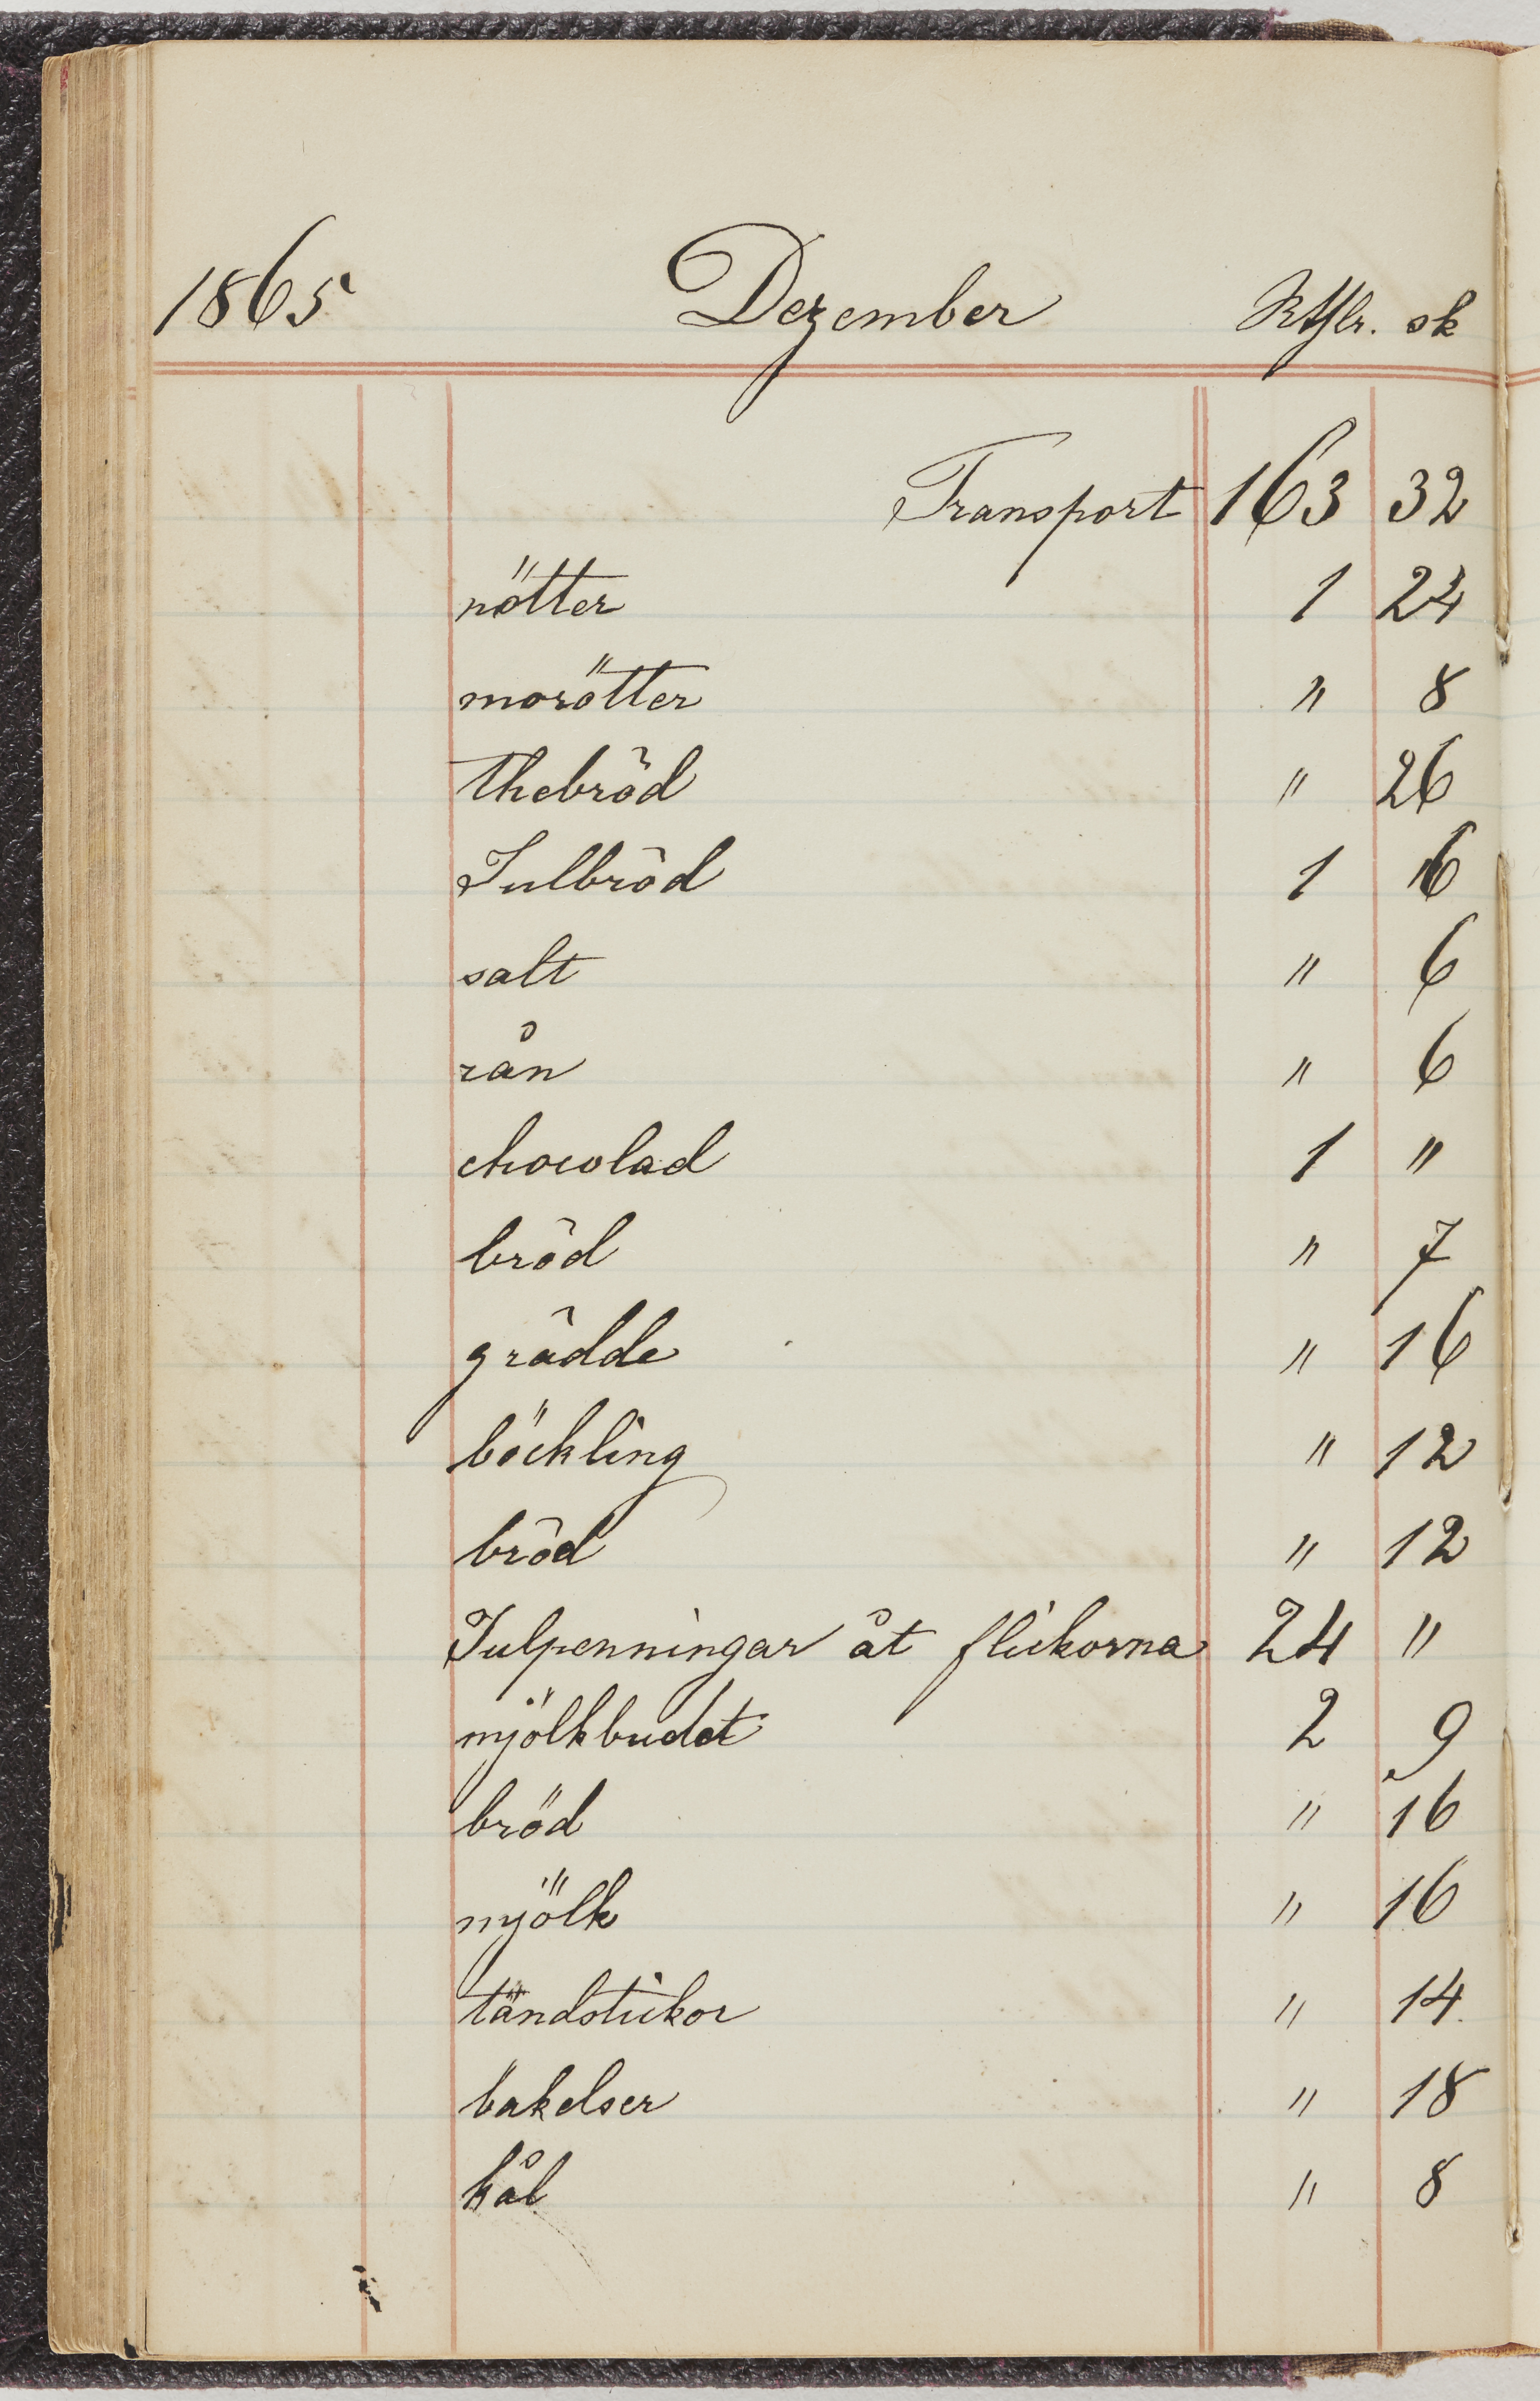 1865 Dezember Rthlr. sk
Transport 163 32
nötter 1 24
morötter " 8
thebröd " 26
Julbröd 1 16
salt " 6
rån " 6
chocolad 1 "
bröd " 7
grädde " 16
böckling " 12
bröd " 12
Julpenningar åt flickorna 24 "
mjölkbudet 2 9
bröd " 16
mjölk " 16
tändstickor " 14.
bakelser " 18
kål " 8